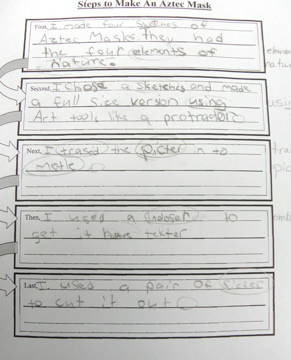 Steps to Make An Aztec Mask
First, I made four scetches of
Aztec Masks they had
the four elements of
Nature.
Second, I chose a sketches and made
a full size version using
Art tools like a protractor
Next, I trased the picter n to
metle
Then, I used a to
get it have texter
Last, I used a pair of sicters
to cut it out